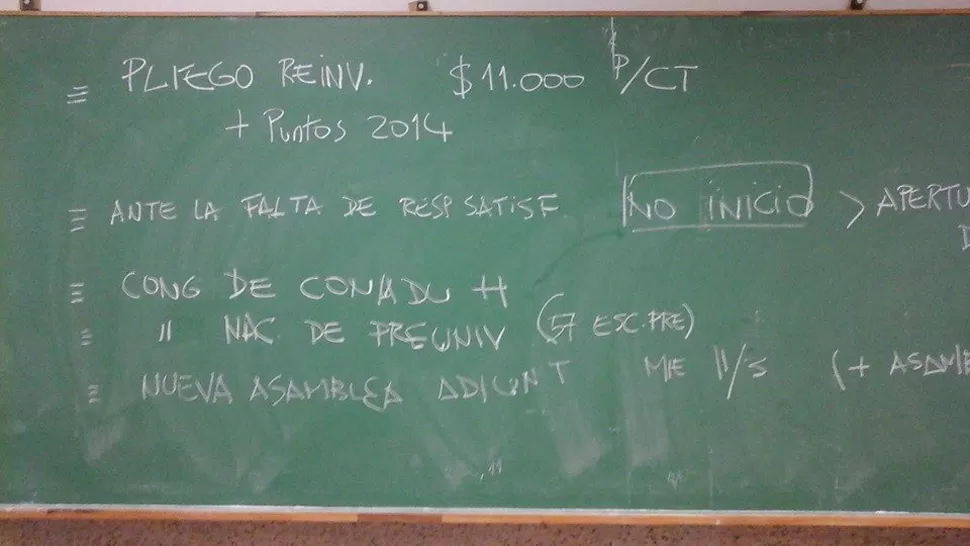 ≡ PLIEGO REINV. $11.000 P/CT
+ Puntos 2014
≡ ANTE LA FALTA DE RESP SATISF. NO INICIO > APERTU
≡ CONG DE CONADU H
≡ " NAC. DE PREUNIV (57 ESC.PRE)
≡ NUEVA ASAMBLEA ADIUNT MIE 11/3 (+ ASAMBLE